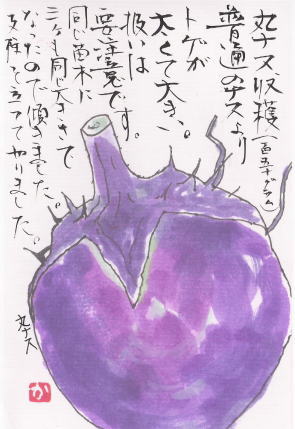 丸ナス収穫(百五十グラム)
普通のナスより
トゲが
太くて大き、。
扱いは
要注意です。
同じ苗木に
三ケも同じ大きさで
なったので傾きました。
支柱を立ててやりました。
丸ナス
か